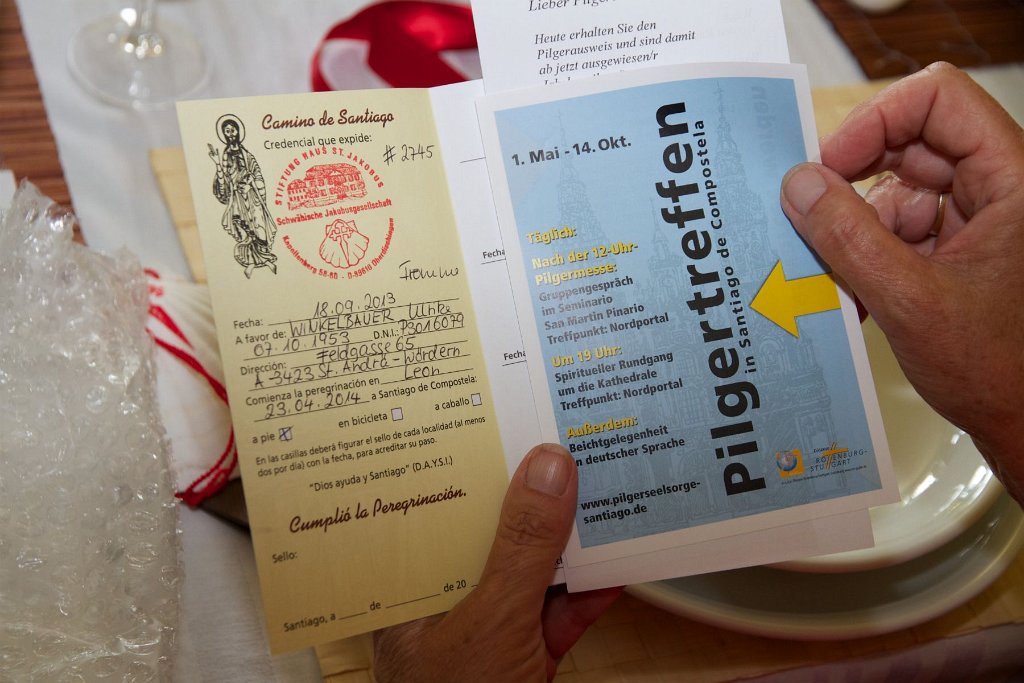 Camino de Santiago
Credencial que expide:
# 2745
STIFTUNG HAUS ST. JAKOBUS
Schwäbische Jakobusgesellschaft
Fecha: 18.09.2013
A favor de: WINKELBAUER Ulrike
07.10.1953 D.N.I.: P3016079
Dirección: Feldgasse 65
A-3423 St. Andrä-Wördern
Comienza la peregrinación en León
23.04.2014 a Santiago de Compostela:
en bicicleta a caballo
a pie X
En las casillas deberá figurar el sello de cada localidad (al menos
dos por día) con la fecha, para acreditar su paso.
"Dios ayuda y Santiago" (D.A.Y.S.I.)
Cumplió la Peregrinación.
Sello:
Santiago, a ____ de ________ de 20
Fecha
Heute erhalten Sie den
Pilgerausweis und sind damit
ab jetzt ausgewiesen/r
1. Mai - 14. Okt.
Täglich:
Nach der 12-Uhr-
Pilgermesse:
Gruppengespräch
im Seminario
San Martin Pinario
Treffpunkt: Nordportal
Um 19 Uhr:
Spiritueller Rundgang
um die Kathedrale
Treffpunkt: Nordportal
Außerdem:
Beichtgelegenheit
in deutscher Sprache
www.pilgerseelsorge-
santiago.de
Pilgertreffen
in Santiago de Compostela
ROTTENBURG-
STUTTGART